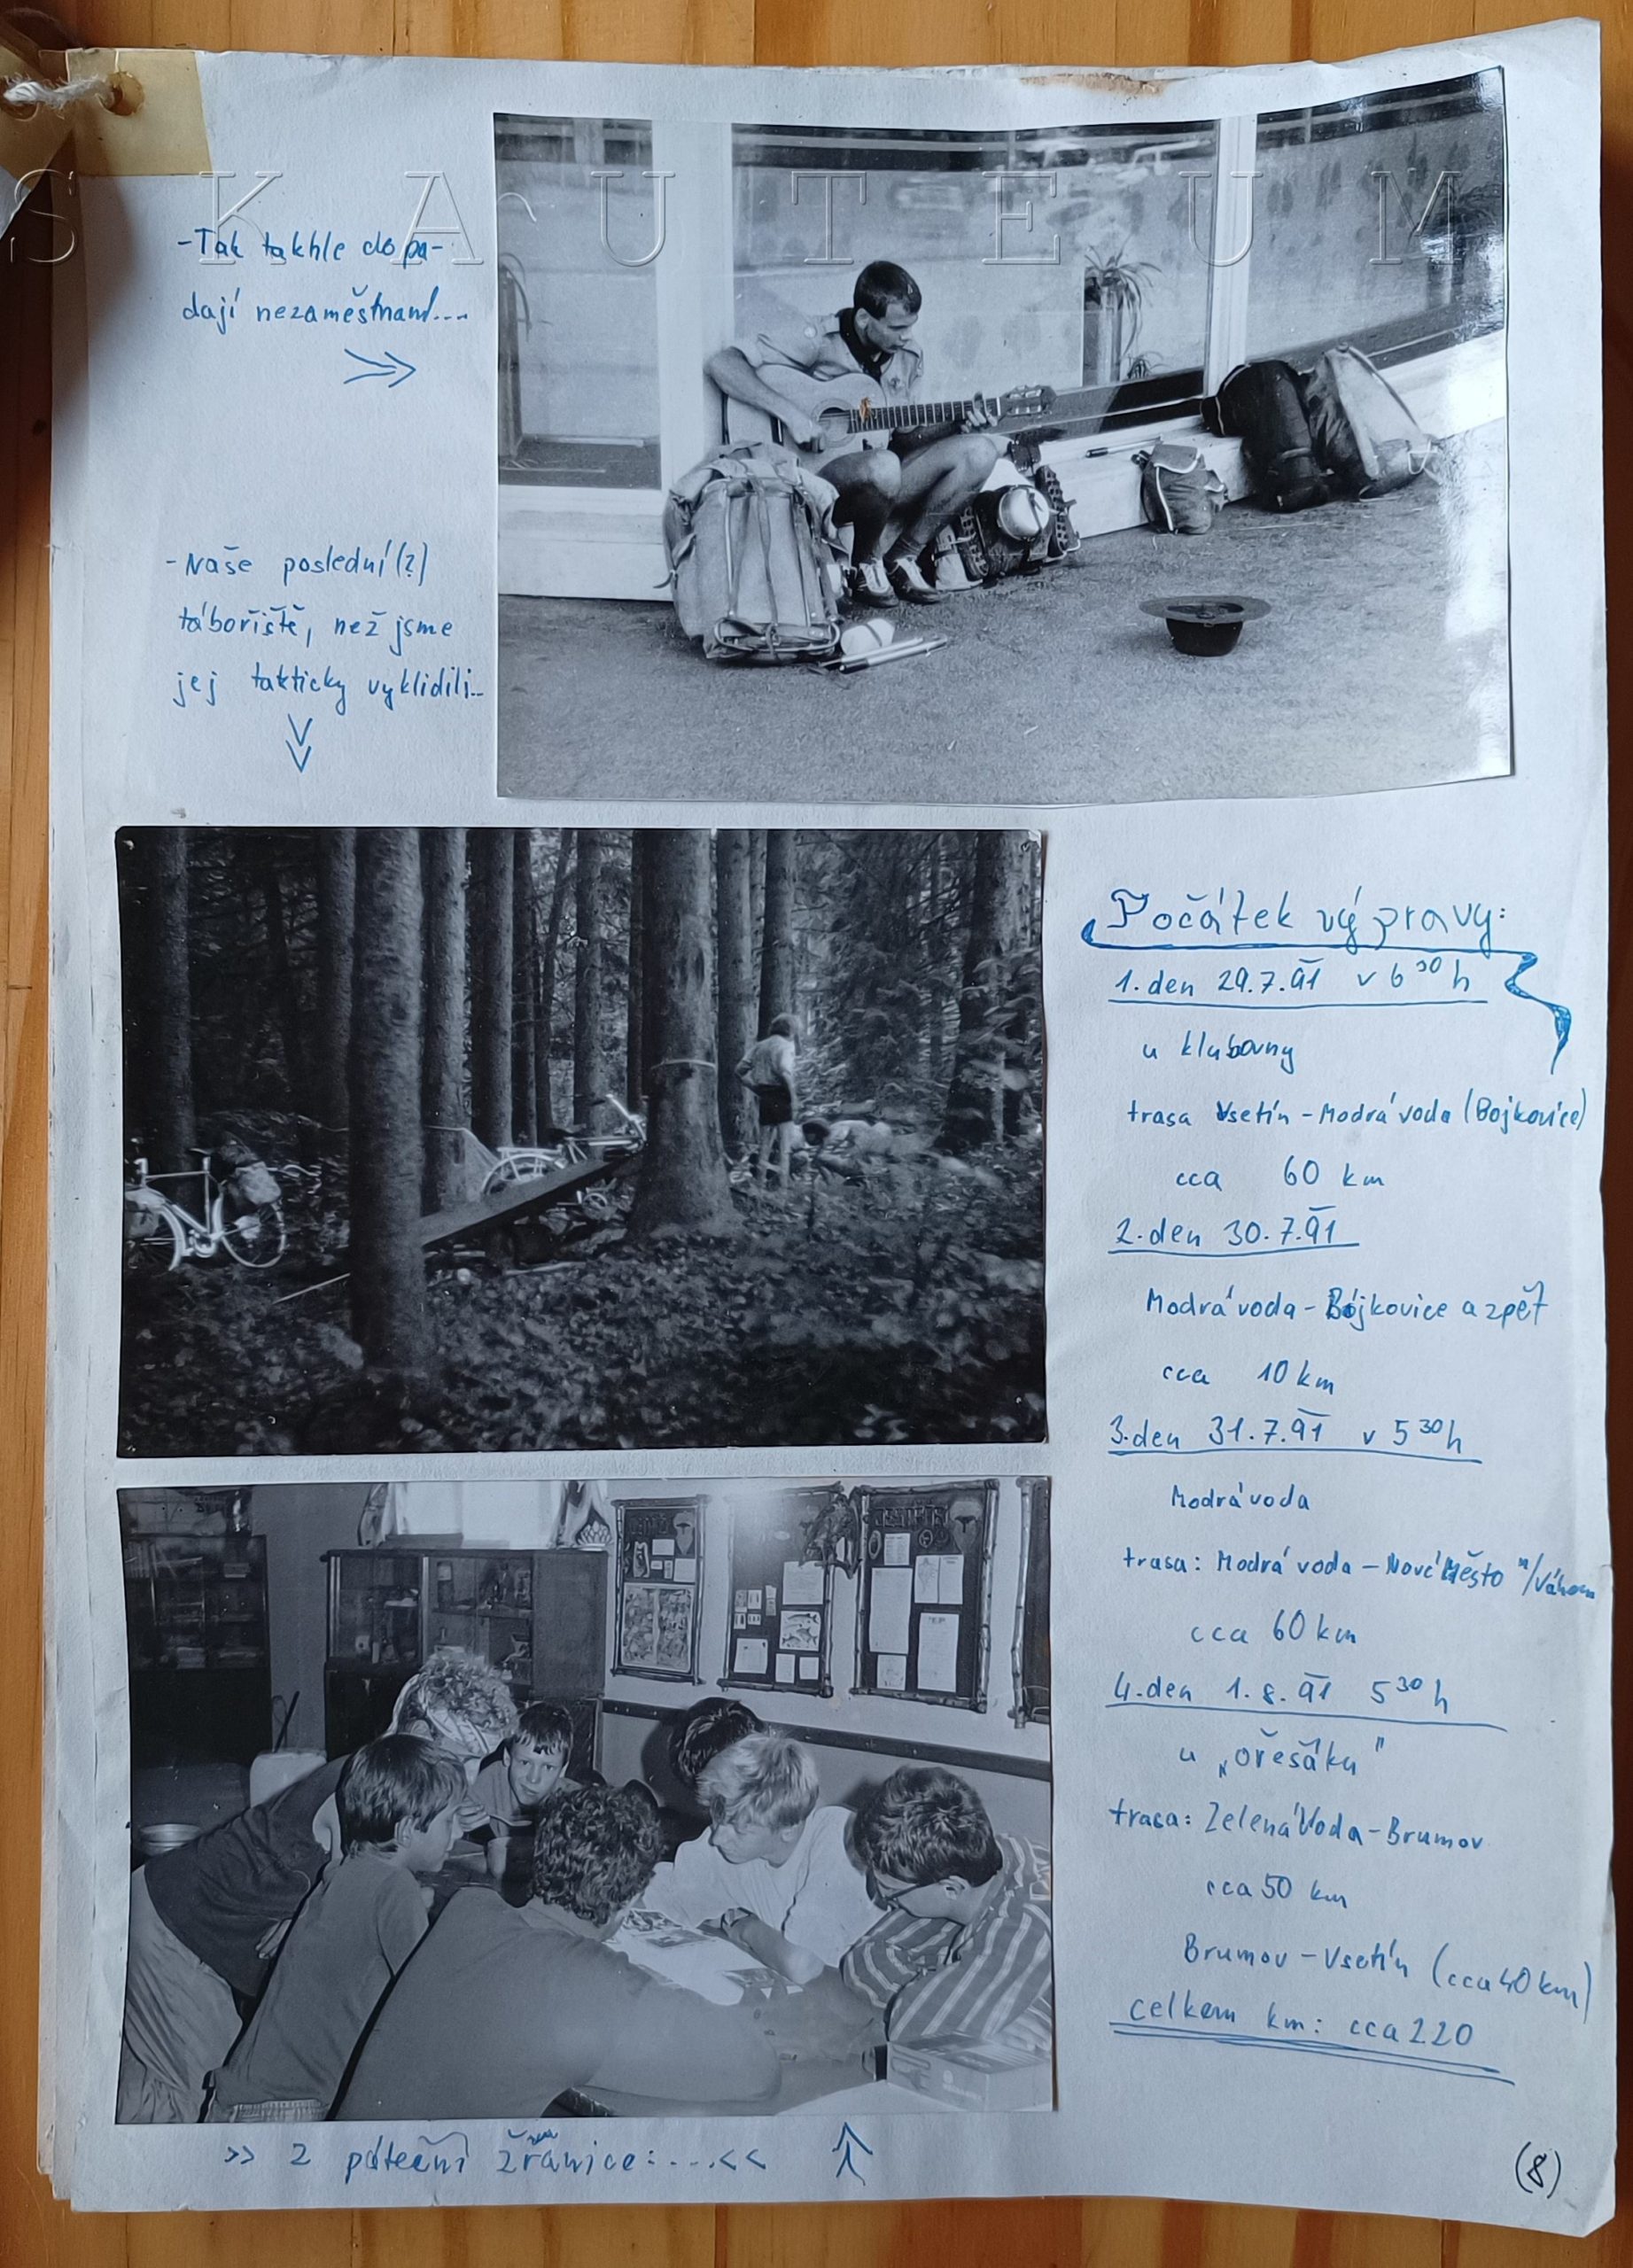 SKAUTEUM
-Tak takhle dopa-
dají nezaměstnaní...
-Naše poslední(?)
tábořiště, než jsme
jej takticky vyklidili...
Počátek výpravy:
1.den 29.7.91 v 6³⁰ h
u klubovny
trasa Vsetín-Modrá voda (Bojkovice)
cca 60 km
2.den 30.7.91
Modrá voda-Bojkovice a zpět
cca 10 km
3.den 31.7.91 v 5³⁰ h
Modrá voda
trasa: Modrá voda - Nové Město n/Váhom
cca 60 km
4.den 1.8.91 5³⁰ h
u „ořešáku"
trasa: Zelená Voda-Brumov
cca 50 km
Brumov-Vsetín (cca 40 km)
celkem km: cca 220
>> Z páteční žranice:...<<
(8)